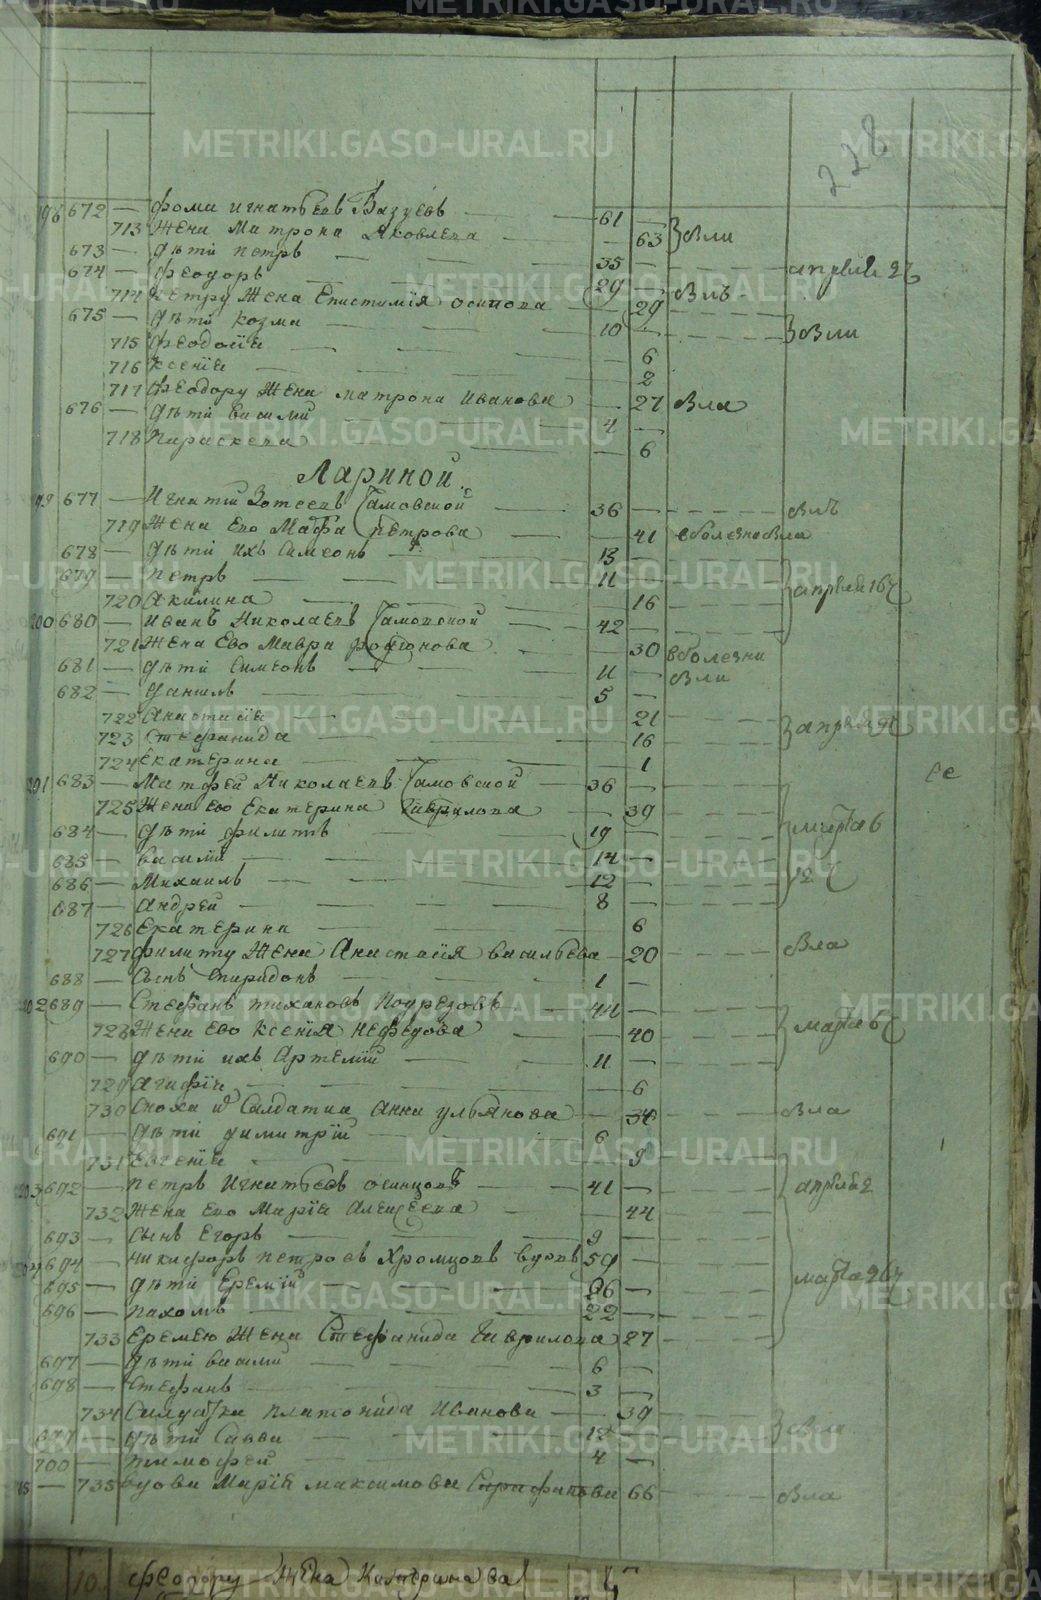 228
198 672 — Фома Игнатьевъ Вазуевъ — 61 —
713 Жена Матрона Яковлева — — 63 } была
673 — дѣти Петръ — 35 — апреля 27
674 — Феодоръ — 29 —
714 Петру жена Епистимія Осипова — 29 была
675 — дѣти Козма — 10 — были
715 Феодосія — 6
716 Ксенія — 2
717 Феодору жена Матрона Иванова — 27 была
676 — дѣти Василій — 4 —
718 Параскева — 6
Лариной
199 677 — Игнатій Зотеевъ Тамовской — 36 — былъ
719 Жена Ево Марфа Петрова — 41 в болезни была
678 — дѣти ихъ Симеонъ — 13 —
679 — Петръ — 11 — апреля 16
720 Акилина — 16
200 680 — Иванъ Николаевъ Тамовской — 42 —
721 Жена Ево Мавра Родіонова — 30 в болезни
681 — дѣти Симеонъ — 11 — были
682 — Данилъ — 5 —
722 Анастасія — 21 апреля
723 Стефанида — 16
724 Екатерина — 1
201 683 — Матфей Николаевъ Тамовской — 36 —
725 Жена Ево Екатерина Гаврилова — 39
684 — дѣти Филиппъ — 19 — марта 6
685 — Василій — 14 —
686 — Михаилъ — 12 — 12
687 — Андрей — 8 —
726 Екатерина — 6
727 Филиппу Жена Анастасія Васильева — 20 была
688 — Сынъ Спиридонъ — 1 —
202 689 — Стефанъ Тихановъ Подрезовъ — 44 —
728 Жена Ево Ксенія Нефедова — 40 марта 6
690 — дѣти ихъ Артемій — 11 —
729 Агафія — 6
730 Сноха Салдатка Анна Ульянова — 34 была
691 — дѣти Димитрій — 6 —
731 Евгенія — 9
203 692 — Петръ Игнатьевъ Осинцовъ — 41 — апреля 2
732 Жена Ево Марія Алексеева — 44
693 — Сынъ Егоръ — 9 —
204 694 — Никифоръ Петровъ Хромцовъ вдовъ 59 —
695 — дѣти Еремій — 26 — марта 26
696 — Пахомъ — 22 —
733 Еремею Жена Стефанида Гаврилова 27
697 — дѣти Василій — 6 —
698 — Стефанъ — 3 —
734 Салдатка Платонида Иванова — 39
699 — дѣти Савва — 12 — была
700 — Тимофей — 4 —
735 вдова Марія Максимова 66 была
10. Феодору Жена Катерина